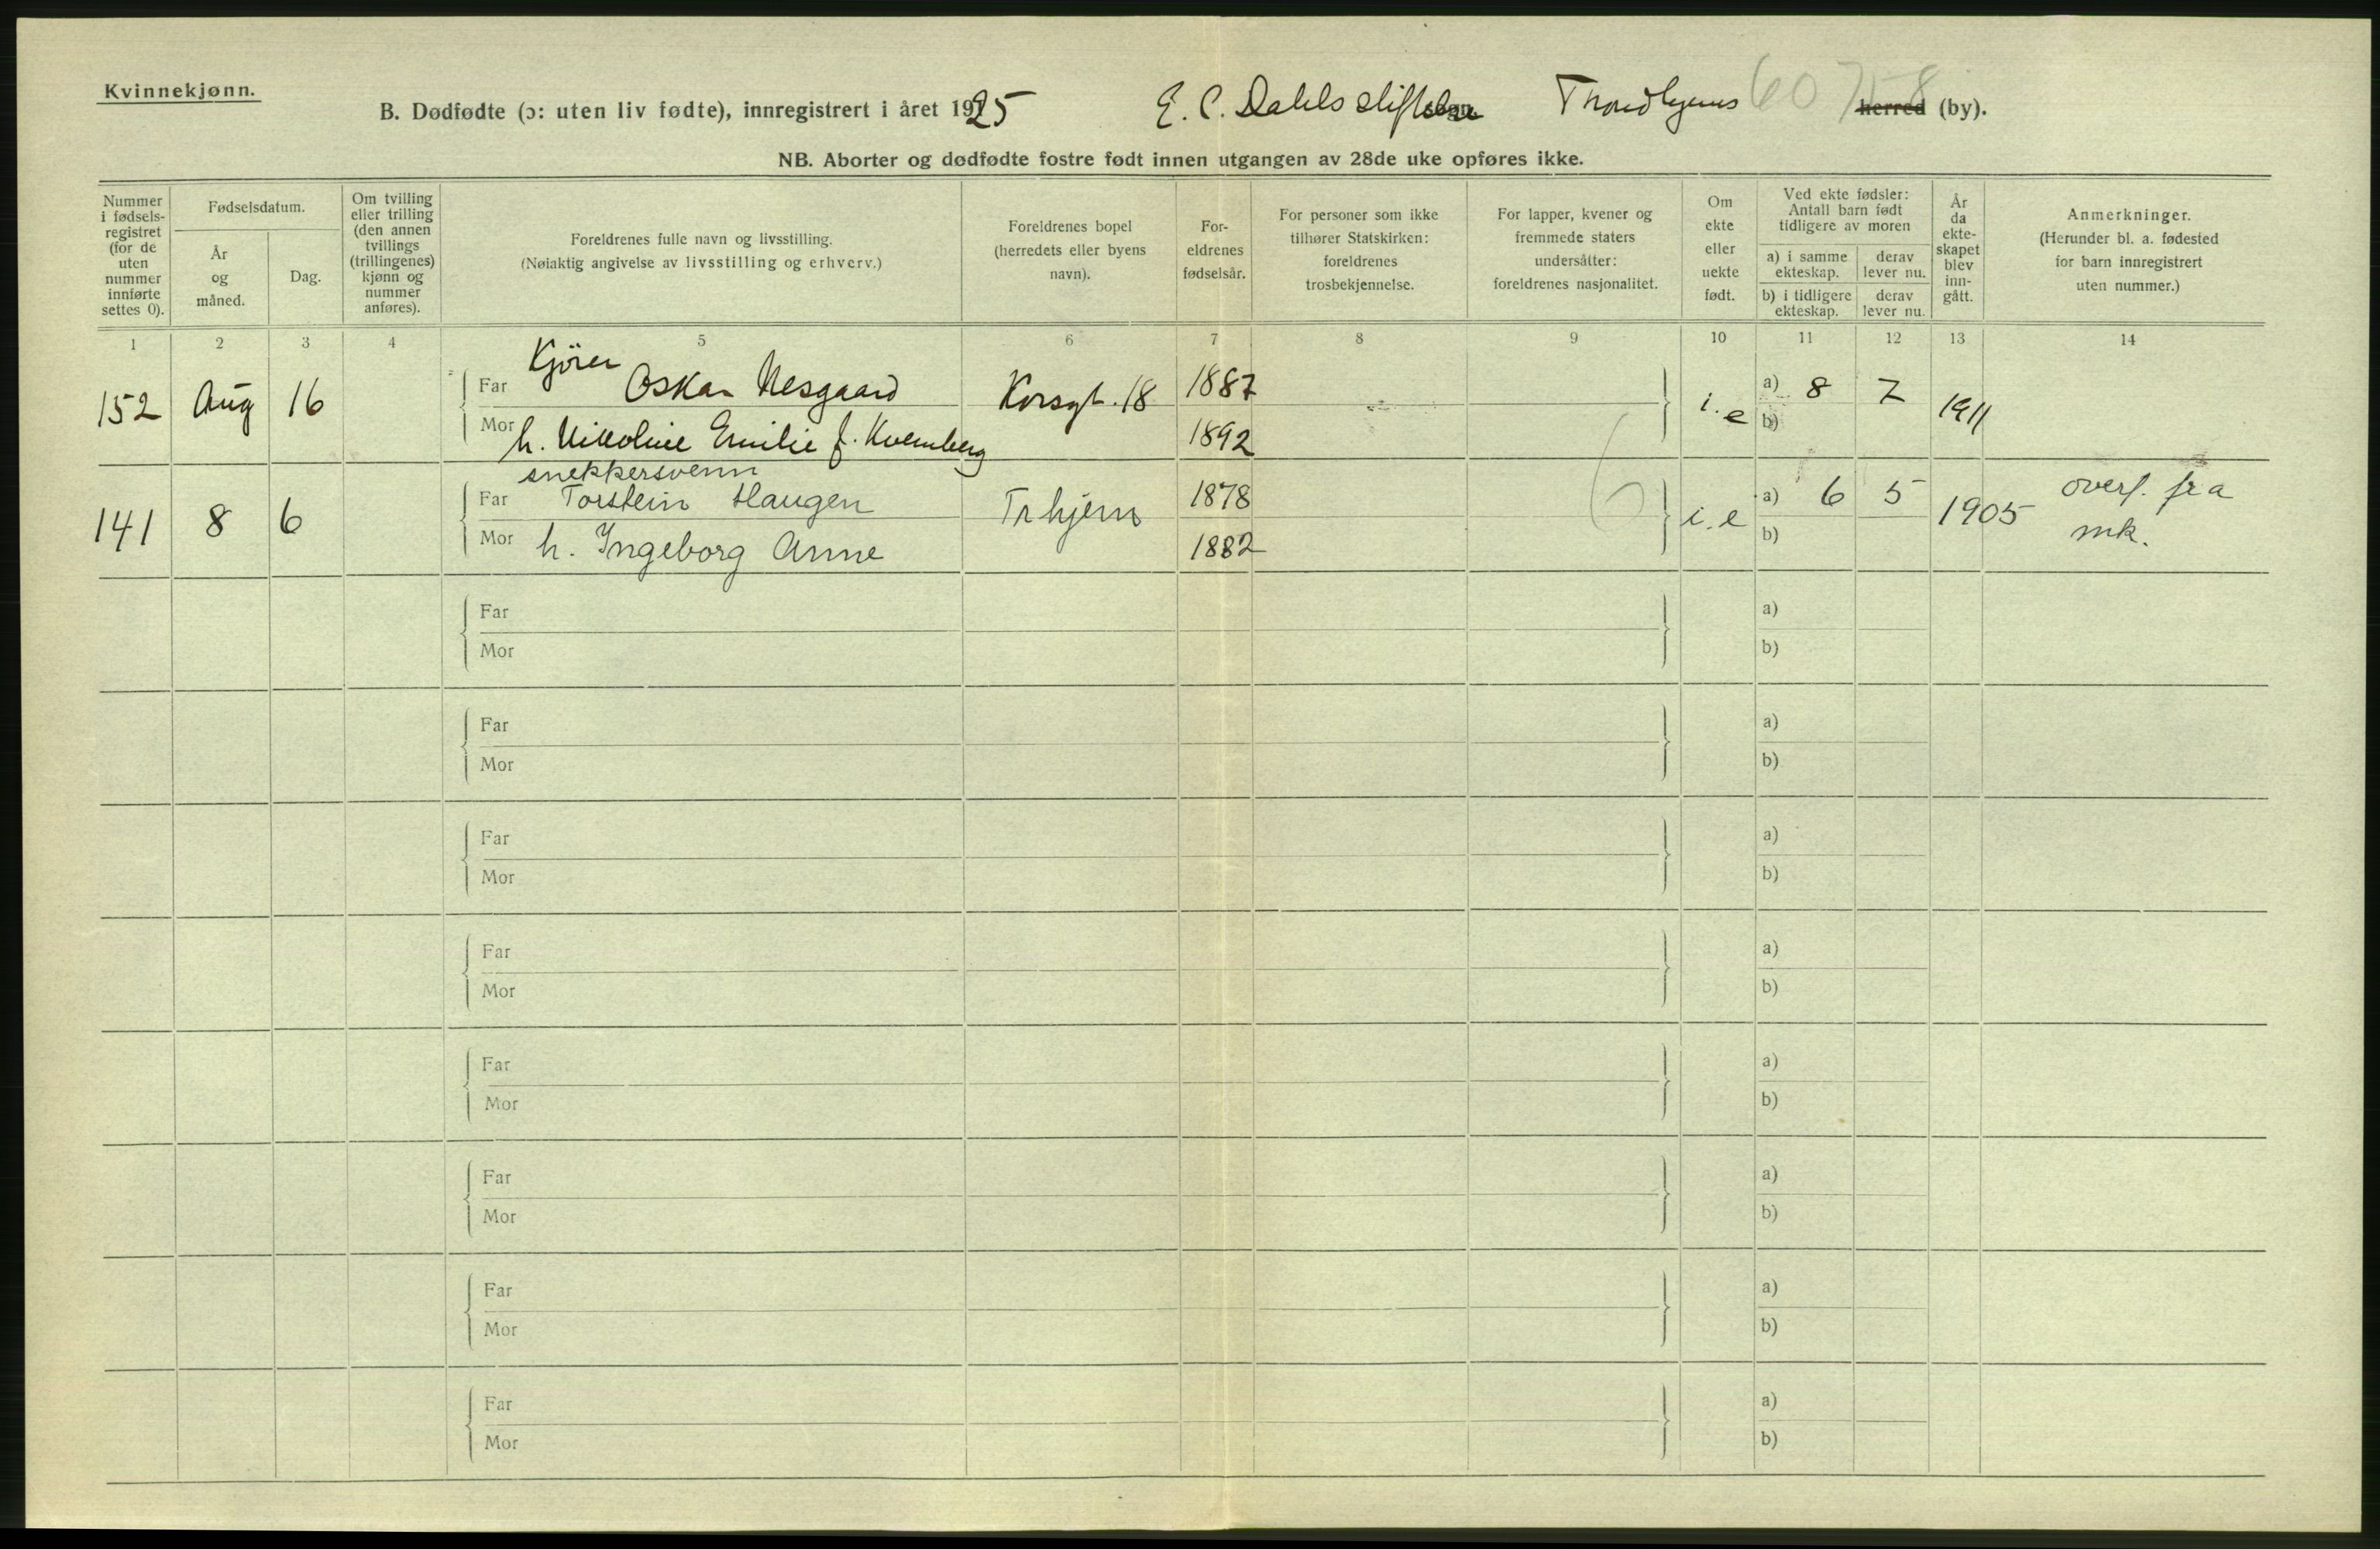 Kvinnekjønn.
B. Dødfødte (ɔ: uten liv fødte), innregistrert i året 1925 E. C. Dahls stiftelse Trondhjems herred (by).
NB. Aborter og dødfødte fostre født innen utgangen av 28de uke opføres ikke.
Nummer i fødsels-registret (for de uten nummer innførte settes 0).
Fødselsdatum.
År og måned.
Dag.
Om tvilling eller trilling (den annen tvillings (trillingenes) kjønn og nummer anføres).
Foreldrenes fulle navn og livsstilling.
(Nøiaktig angivelse av livsstilling og erhverv.)
Foreldrenes bopel (herredets eller byens navn).
For-eldrenes fødselsår.
For personer som ikke tilhører Statskirken: foreldrenes trosbekjennelse.
For lapper, kvener og fremmede staters undersåtter: foreldrenes nasjonalitet.
Om ekte eller uekte født.
Ved ekte fødsler: Antall barn født tidligere av moren
a) i samme ekteskap.
derav lever nu.
b) i tidligere ekteskap.
derav lever nu.
År da ekte-skapet blev inn-gått.
Anmerkninger.
(Herunder bl. a. fødested for barn innregistrert uten nummer.)
1 2 3 4 5 6 7 8 9 10 11 12 13 14
Kjörer
152 Aug 16 Far Oskar Nesgaard Korsgt. 18 1887 i. e a) 8 7 1911
Mor h. Nikoline Emilie f. Kvernberg 1892 b)
snekkersvenn
141 8 6 Far Torstein Haugen Trhjem 1878 i. e a) 6 5 1905 overf. fra mk.
Mor h. Ingeborg Anne 1882 b)
Far a)
Mor b)
Far a)
Mor b)
Far a)
Mor b)
Far a)
Mor b)
Far a)
Mor b)
Far a)
Mor b)
Far a)
Mor b)
Far a)
Mor b)